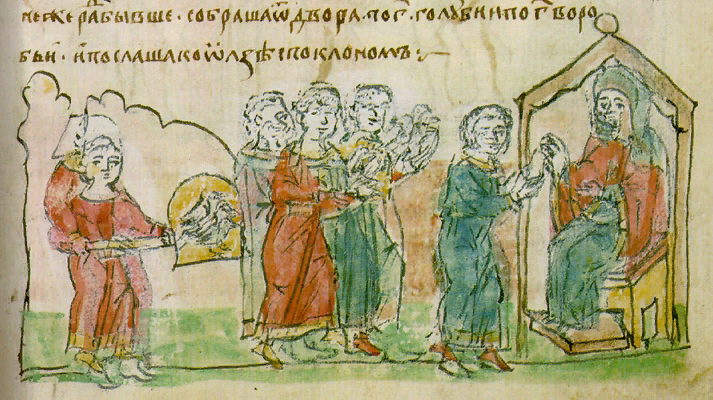 же раⷣ бывше · собраша ѿ двора · по г҃ · голуби и по г҃ воро
бьи · и послаша ко ѡлзѣ с поклономъ :~